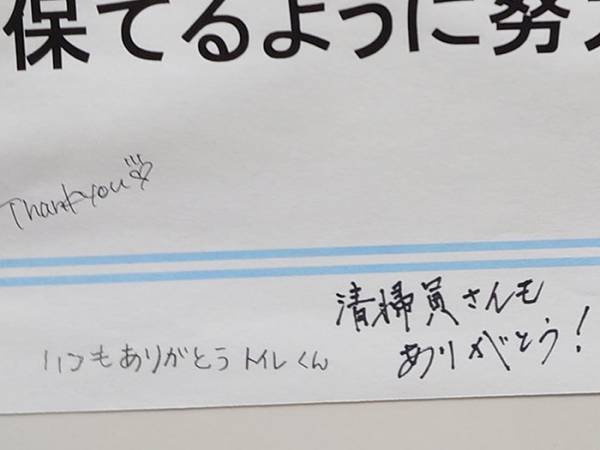 保てるように努
Thank you
清掃員さんも
ありがとう!
いつもありがとうトイレくん